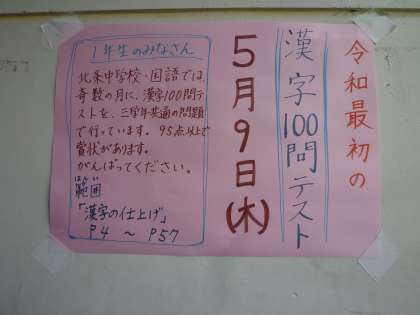 令和最初の
漢字100問テスト
5月9日(木)
1年生のみなさん
北条中学校・国語では、
奇数の月に、漢字100問テ
ストを、三学年共通の問題
で行っています。95点以上で
賞状があります。
がんばってください。
はんい
範囲
「漢字の仕上げ」
P4 〜 P57